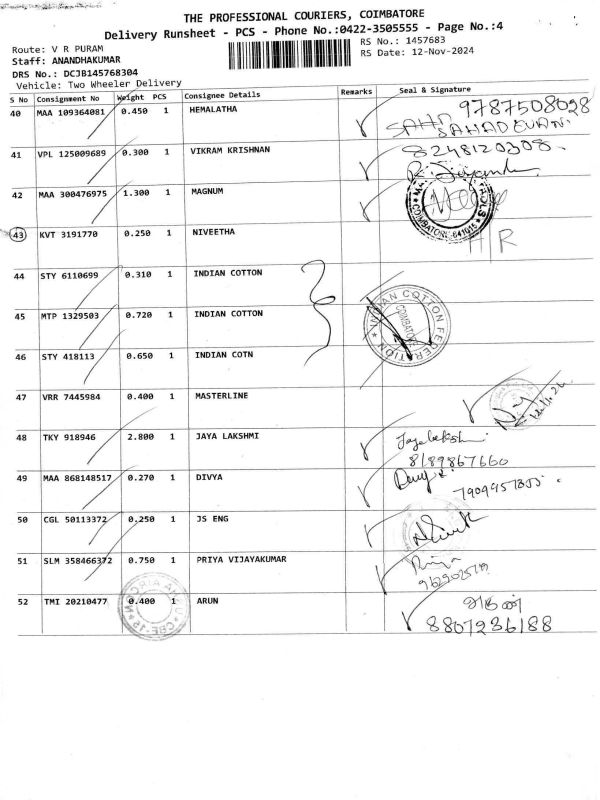 THE PROFESSIONAL COURIERS, COIMBATORE
Delivery Runsheet - PCS - Phone No.:0422-3505555 - Page No.:4
Route: V R PURAM
RS No.: 1457683
Staff: ANANDHAKUMAR
RS Date: 12-Nov-2024
DRS No.: DCJB145768304
Vehicle: Two Wheeler Delivery
S No Consignment No Weight PCS Consignee Details Remarks Seal & Signature
40 MAA 109364081 0.450 1 HEMALATHA 9787508028
SAHADEVAN
41 VPL 125009689 0.300 1 VIKRAM KRISHNAN 8248120308
42 MAA 300476975 1.300 1 MAGNUM
COIMBATORE 641015
43 KVT 3191770 0.250 1 NIVEETHA
44 STY 6110699 0.310 1 INDIAN COTTON
45 MTP 1329503 0.720 1 INDIAN COTTON
INDIAN COTTON FEDERATION
COIMBATORE
46 STY 418113 0.650 1 INDIAN COTN
47 VRR 7445984 0.400 1 MASTERLINE
48 TKY 918946 2.800 1 JAYA LAKSHMI Jayalakshmi
8189867660
49 MAA 868148517 0.270 1 DIVYA
50 CGL 50113372 0.250 1 JS ENG
51 SLM 358466372 0.750 1 PRIYA VIJAYAKUMAR Priya
52 TMI 20210477 0.400 1 ARUN அருண்
8807236188